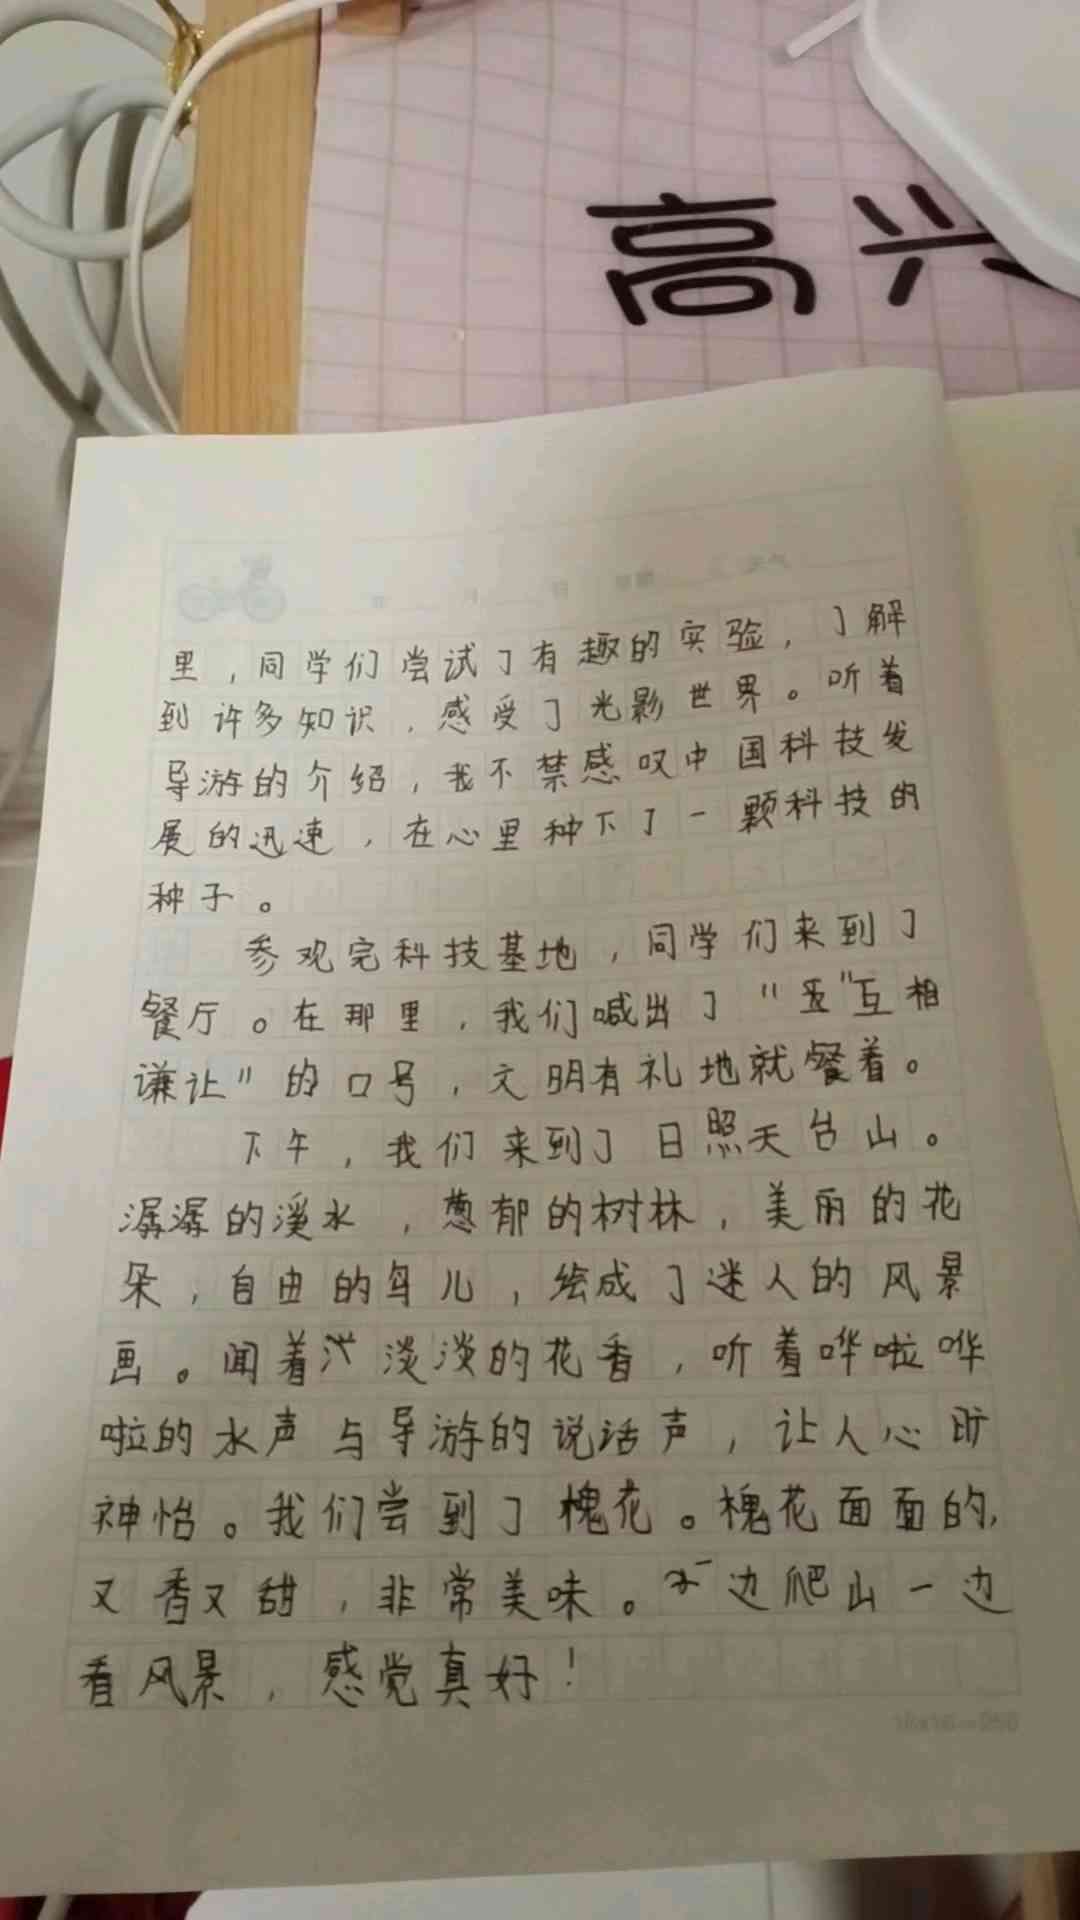 高兴
里，同学们尝试了有趣的实验，了解
到许多知识，感受了光影世界。听着
导游的介绍，我不禁感叹中国科技发
展的迅速，在心里种下了一颗科技的
种子。
参观完科技基地，同学们来到了
餐厅。在那里，我们喊出了“互相
谦让”的口号，文明有礼地就餐着。
下午，我们来到了日照天台山。
潺潺的溪水，葱郁的树林，美丽的花
朵，自由的鸟儿，绘成了迷人的风景
画。闻着淡淡的花香，听着哗啦哗
啦的水声与导游的说话声，让人心旷
神怡。我们尝到了槐花。槐花面面的，
又香又甜，非常美味。一边爬山一边
看风景，感觉真好！